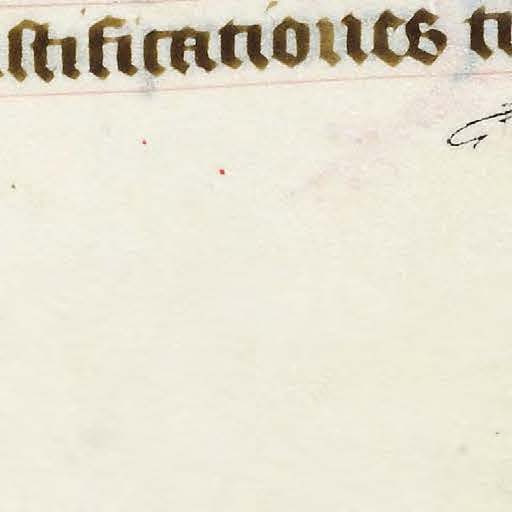 ustificationes tu